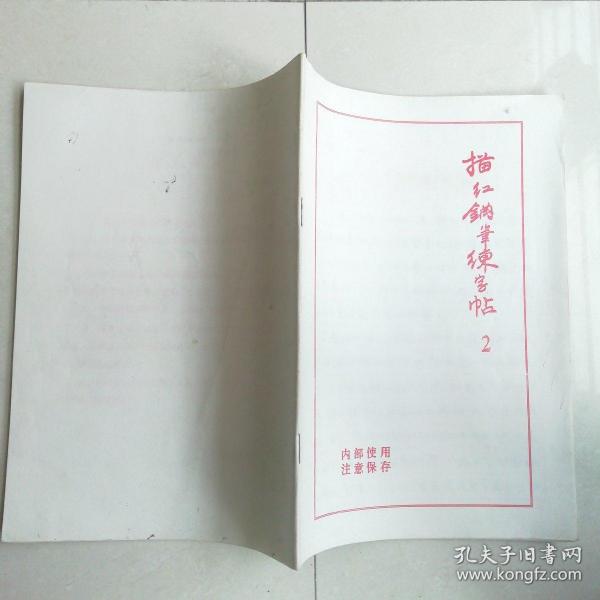 描红鋼筆練字帖 2
内部使用
注意保存
孔夫子旧书网
www.kongfz.com